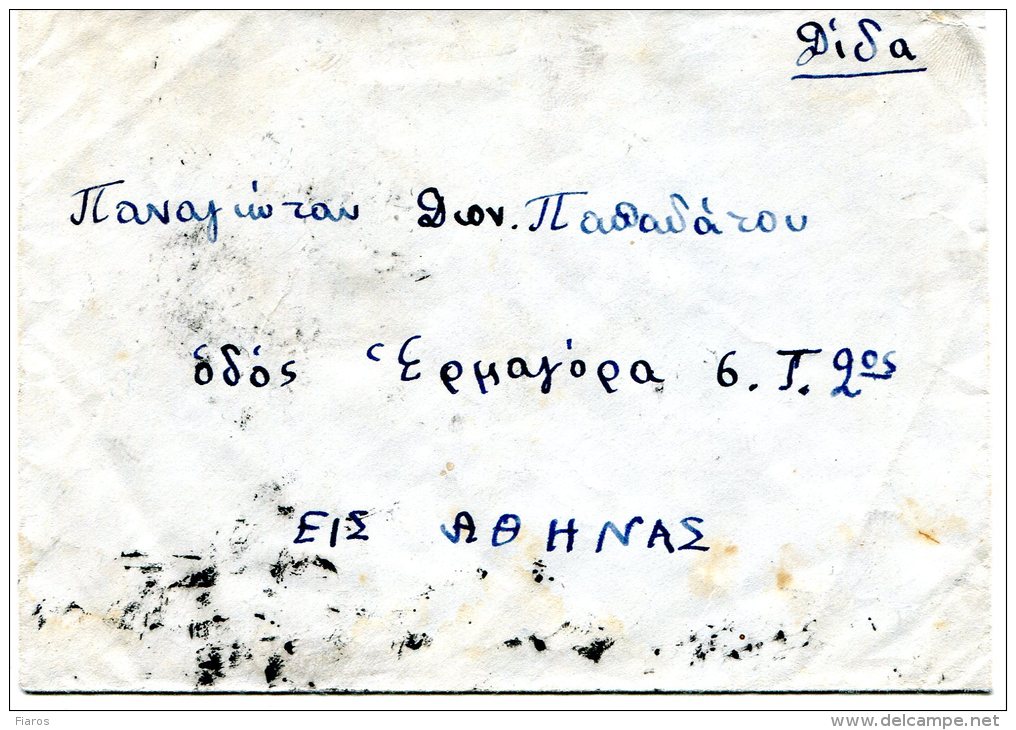 Δίδα
Παναγιώταν Διον. Παπαδάτου
ὁδός Ἑρμαγόρα 6. Τ. 2ος
ΕΙΣ ΑΘΗΝΑΣ
Fiaros
www.delcampe.net